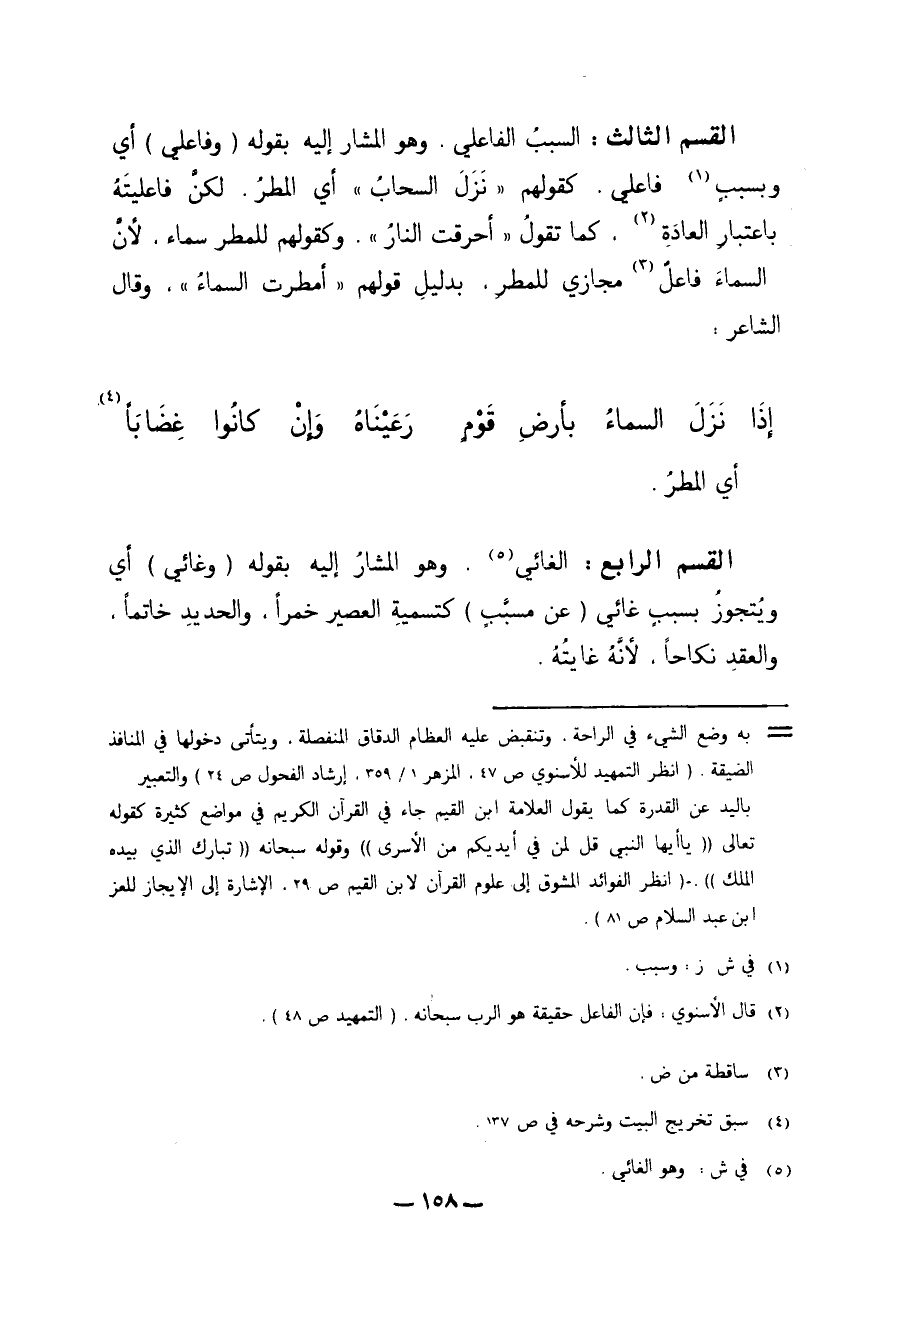 القسم الثالث : السببُ الفاعلي . وهو المشار إليه بقوله ( وفاعلي ) أي
وبسببٍ (١) فاعلي . كقولهم « نَزَلَ السحابُ » أي المطرُ . لكنَّ فاعليتَهُ
باعتبارِ العادَةِ (٢) ، كما تقولُ « أحرقت النارُ » . وكقولهم للمطر سماء ، لأنَّ
السماءَ فاعلٌ (٣) مجازي للمطرِ ، بدليلِ قولهم « أمطرت السماءُ » ، وقال
الشاعر :
إِذَا نَزَلَ السماءُ بأرضِ قَوْمٍ رَعَيْنَاهُ وَإِنْ كانُوا غِضَابَاً (٤)
أي المطرُ .
القسم الرابع : الغائي (٥) . وهو المشارُ إليه بقوله ( وغائي ) أي
ويُتجوزُ بسببٍ غائي ( عن مسبَّبٍ ) كتسميةِ العصيرِ خمراً ، والحديدِ خاتماً ،
والعقدِ نكاحاً ، لأنَّهُ غايتُهُ .
= به وضع الشيء في الراحة . وتنقبض عليه العظام الدقاق المنفصلة ، ويتأتى دخولها في المنافذ
الضيقة . ( انظر التمهيد للأسنوي ص ٤٧ ، المزهر ١ / ٣٥٩ ، إرشاد الفحول ص ٢٤ ) والتعبير
باليد عن القدرة كما يقول العلامة ابن القيم جاء في القرآن الكريم في مواضع كثيرة كقوله
تعالى (( ياأيها النبي قل لمن في أيديكم من الأسرى )) وقوله سبحانه (( تبارك الذي بيده
الملك )) .-( انظر الفوائد المشوق إلى علوم القرآن لابن القيم ص ٢٩ ، الإشارة إلى الإيجاز للعز
ابن عبد السلام ص ٨١ ) .
(١) في ش ز : وسبب .
(٢) قال الأسنوي : فإن الفاعل حقيقة هو الرب سبحانه . ( التمهيد ص ٤٨ ) .
(٣) ساقطة من ض .
(٤) سبق تخريج البيت وشرحه في ص ١٣٧ .
(٥) في ش : وهو الغائي .
— ١٥٨ —